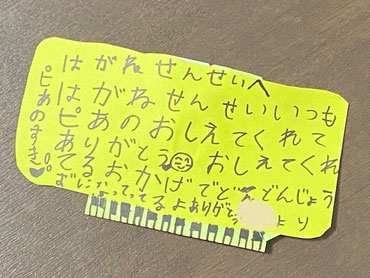 はがねせんせいへ
はがねせんせいいつも
ピあのおしえてくれて
ありがとうおしえてくれ
てるおかげでどんどんじょう
ずになってってるよありがとう より
ピあのすき